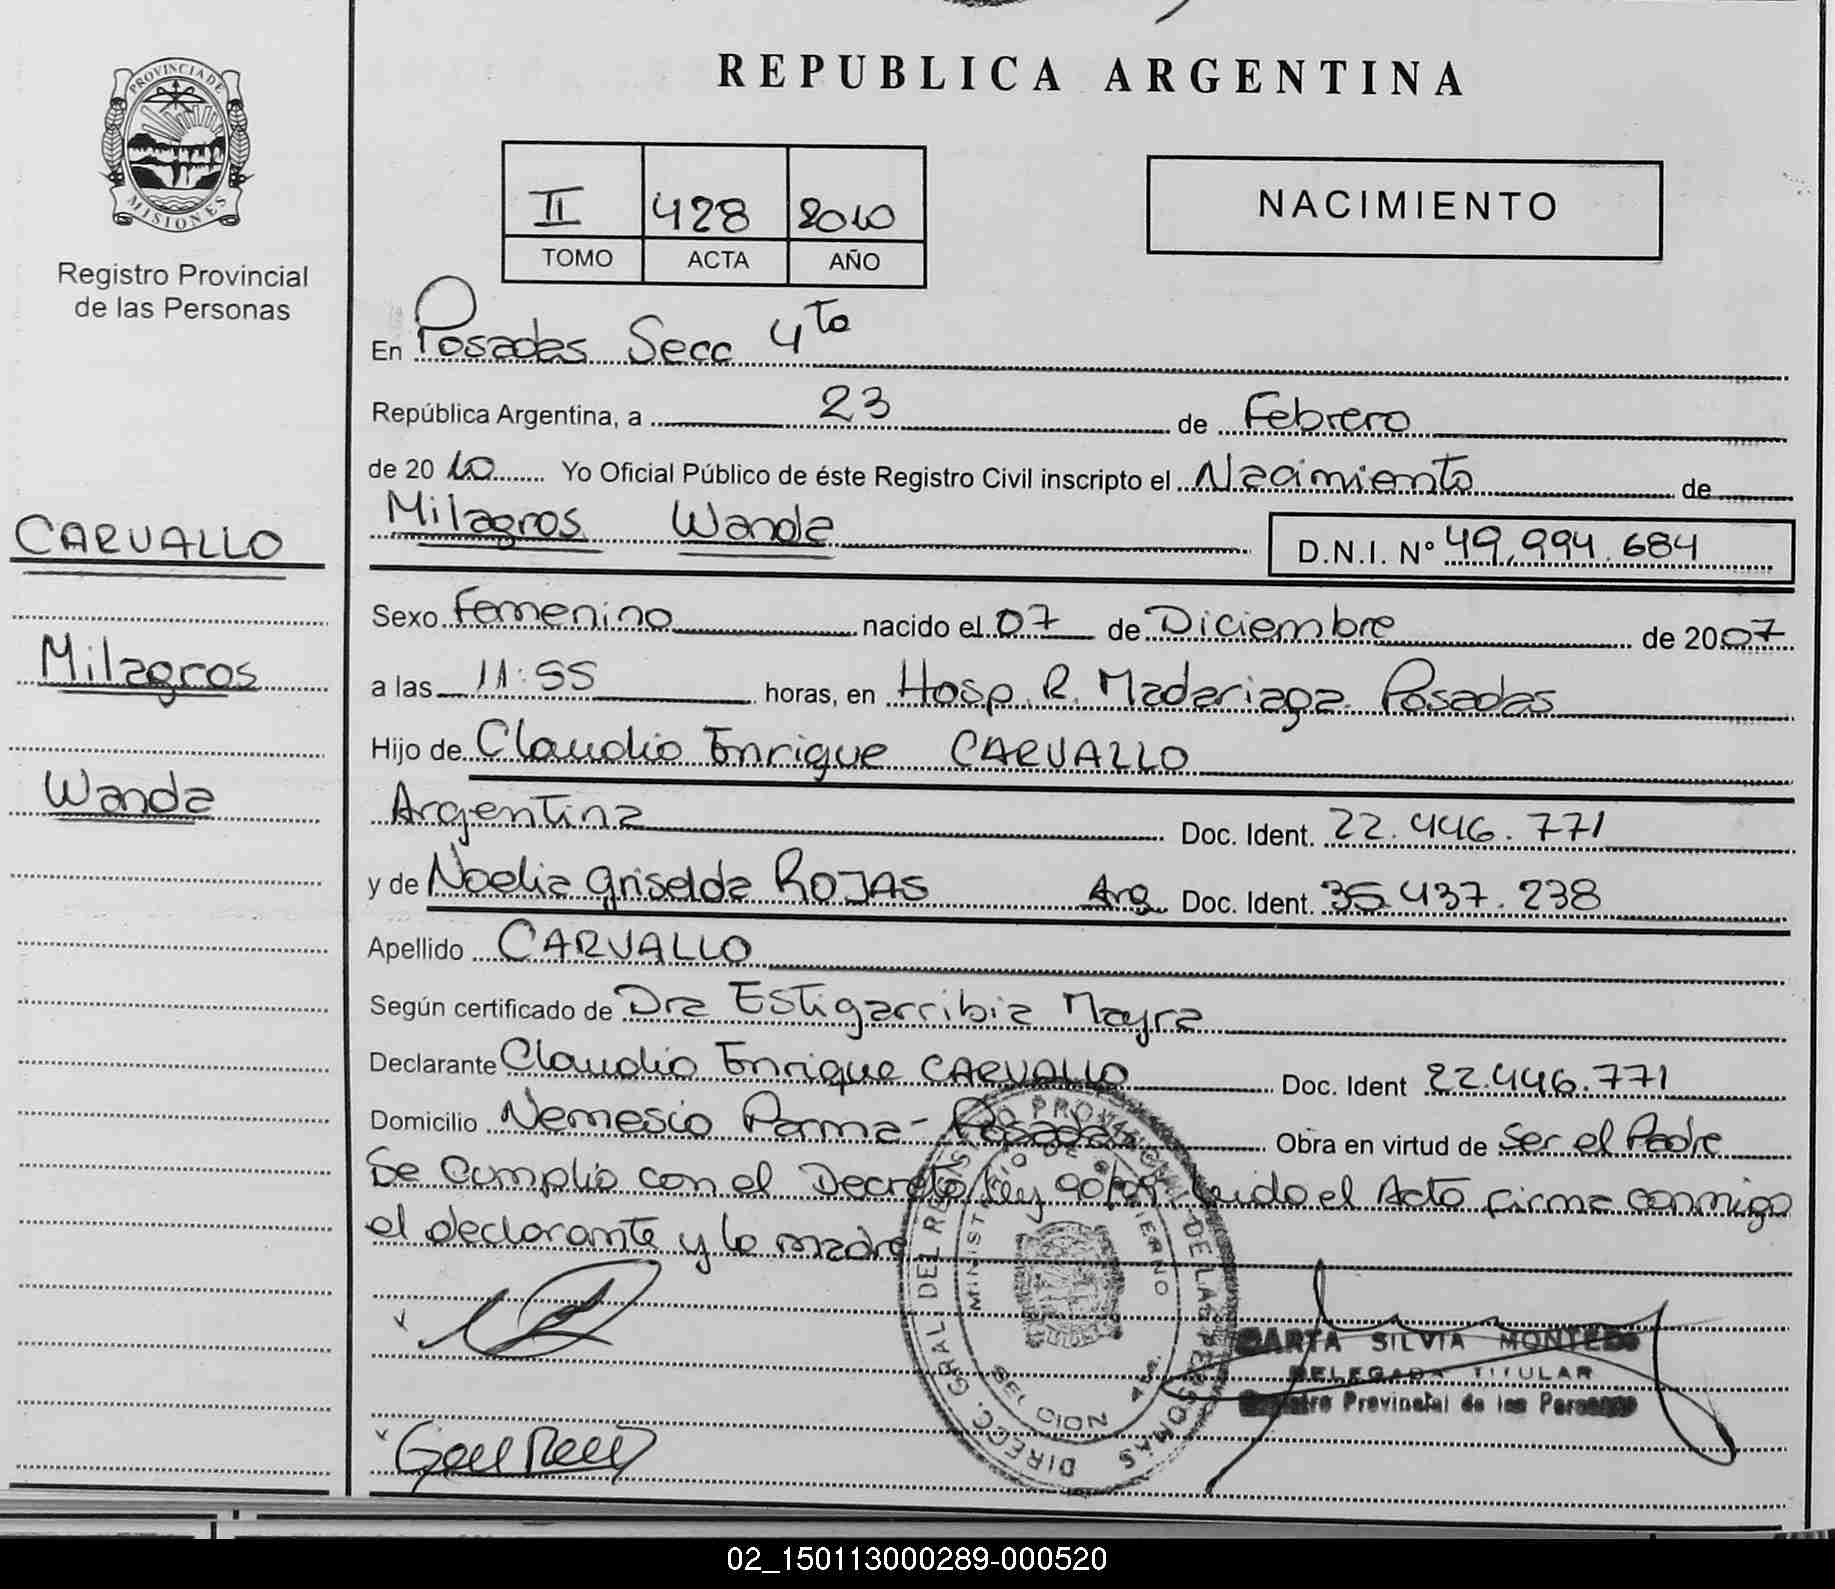 REPUBLICA ARGENTINA
PROVINCIA DE
MISIONES
Registro Provincial
de las Personas
II 428 2010
TOMO ACTA AÑO
NACIMIENTO
En Posadas Secc 4to
República Argentina, a 23 de Febrero
de 2010 Yo Oficial Público de éste Registro Civil inscripto el Nacimiento de
Milagros Wanda D.N.I. Nº 49.994.684
CARVALLO
Milagros
Wanda
Sexo Femenino nacido el 07 de Diciembre de 2007
a las 11:55 horas, en Hosp. R. Madariaga Posadas
Hijo de Claudio Enrique CARVALLO
Argentina Doc. Ident. 22.446.771
y de Noelia Griselda ROJAS Arg. Doc. Ident. 35.437.238
Apellido CARVALLO
Según certificado de Dra Estigarribia Mayra
Declarante Claudio Enrique CARVALLO Doc. Ident 22.446.771
Domicilio Nemesio Parma - Posadas Obra en virtud de Ser el Padre
Se Cumplio con el Decreto/Ley leido el Acto firma conmigo
el declarante y la madre
DIRECC. GRAL DEL DE LAS PERSONAS
MINISTERIO DE GOBIERNO
MONTEDO
SILVIA
DELEGADA TITULAR
Provincial de las Personas
02_150113000289-000520